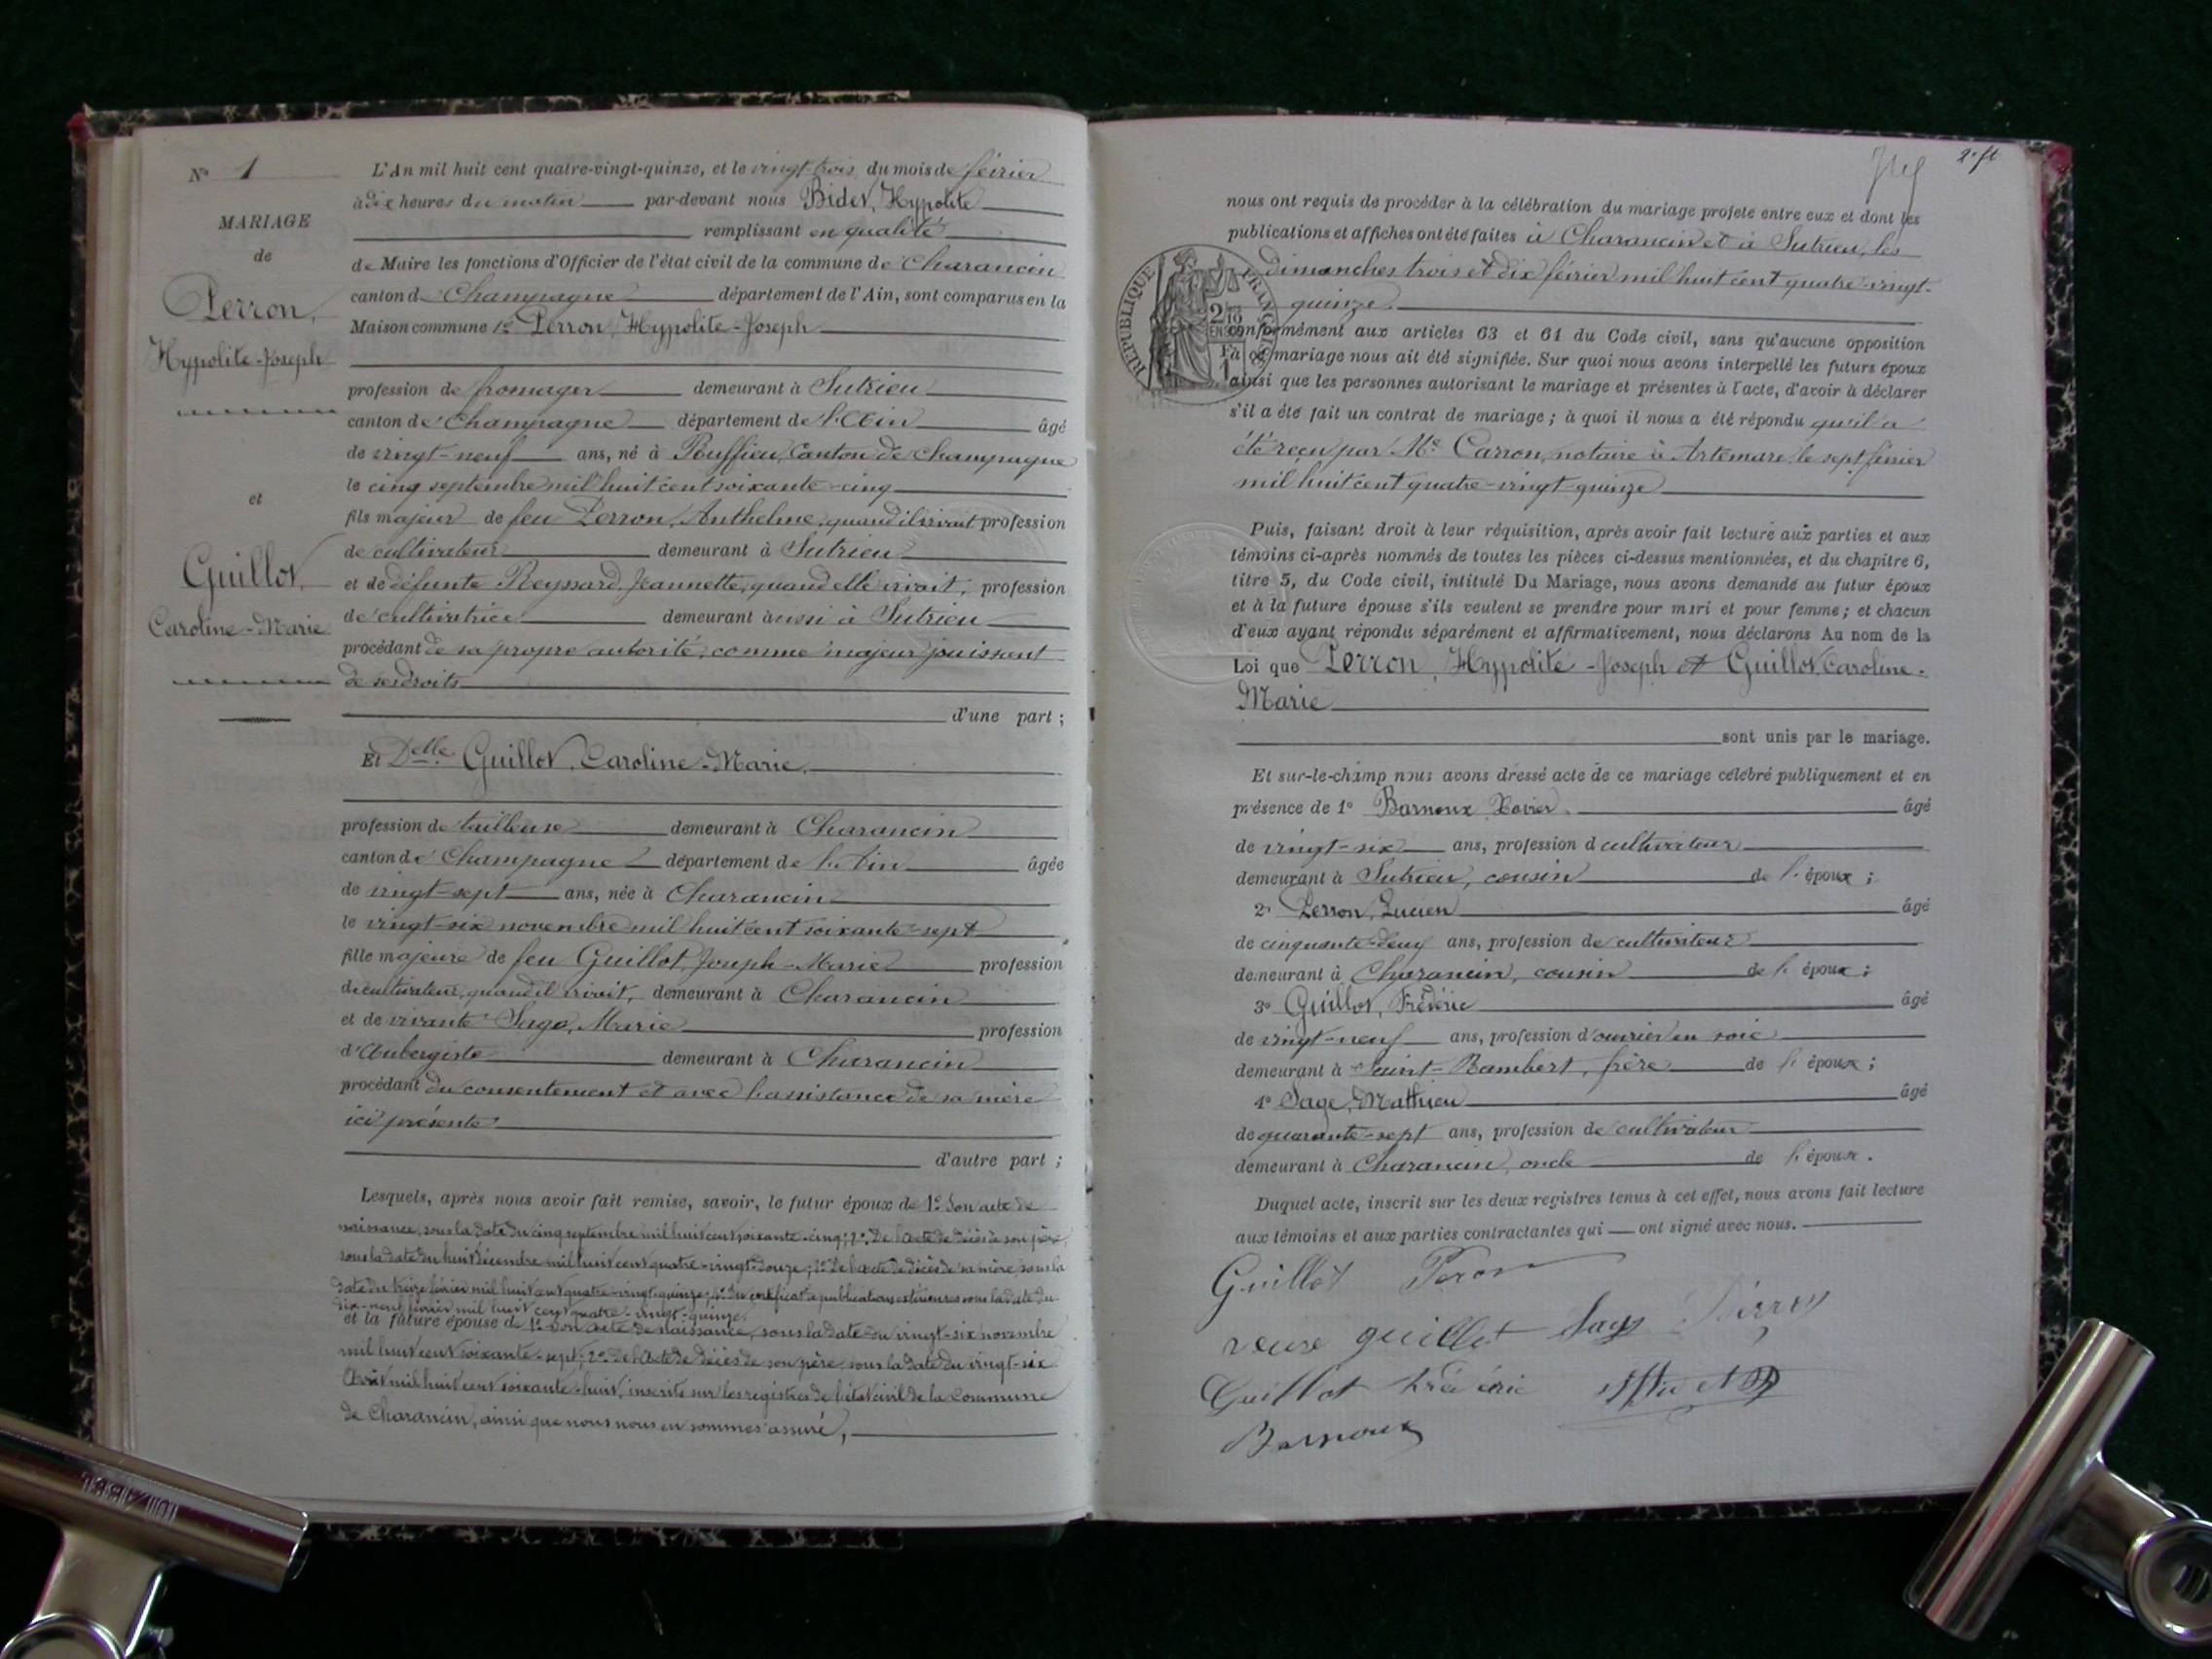 No 1
MARIAGE
de
Perron,
Hypolite-Joseph
et
Guillot,
Caroline-Marie
L'An mil huit cent quatre-vingt-quinze, et le vingt-trois du mois de février
à dix heures du matin par-devant nous Bidet, Hypolite
remplissant en qualité
de Maire les fonctions d'Officier de l'état civil de la commune de Charancin
canton de Champagne département de l'Ain, sont comparus en la
Maison commune 1º Perron, Hypolite-Joseph
profession de fromager demeurant à Sutrieu
canton de Champagne département de l'Ain âgé
de vingt-neuf ans, né à Ruffieu, Canton de Champagne
le cinq septembre mil huit cent soixante-cinq
fils majeur de feu Perron, Anthelme, quand il vivait profession
de cultivateur demeurant à Sutrieu
et de défunte Reyssard, Jeannette, quand elle vivait, profession
de cultivatrice demeurant aussi à Sutrieu
procédant de sa propre autorité, comme majeur jouissant
de ses droits
d'une part ;
Et Delle Guillot, Caroline-Marie,
profession de tailleuse demeurant à Charancin
canton de Champagne département de l'Ain âgée
de vingt-sept ans, née à Charancin
le vingt-six novembre mil huit cent soixante-sept
fille majeure de feu Guillot, Joseph-Marie profession
de cultivateur, quand il vivait, demeurant à Charancin
et de vivante Sage, Marie profession
d'Aubergiste demeurant à Charancin
procédant du consentement et avec l'assistance de sa mère
ici présente
d'autre part ;
Lesquels, après nous avoir fait remise, savoir, le futur époux de 1º Son acte de
naissance, sous la date du cinq septembre mil huit cent soixante-cinq; 2º De l'acte de décès de son père,
sous la date du huit décembre mil huit cent quatre-vingt-douze; 3º De l'acte de décès de sa mère, sous la
date du treize février mil huit cent quatre-vingt-quinze; 4º du certificat de publications extérieures sous la date du
dix-neuf février mil huit cent quatre-vingt-quinze,
et la future épouse de 1º Son acte de naissance, sous la date du vingt-six novembre
mil huit cent soixante-sept; 2º De l'Acte de décès de son père, sous la date du vingt-six
Avril mil huit cent soixante-huit, inscrits sur les registres de l'état civil de la Commune
de Charancin, ainsi que nous nous en sommes assuré,
2e ft
nous ont requis de procéder à la célébration du mariage projeté entre eux et dont les
publications et affiches ont été faites à Charancin et à Sutrieu, les
dimanches trois et dix février mil huit cent quatre-vingt-
quinze.
RÉPUBLIQUE FRANÇAISE
conformément aux articles 63 et 64 du Code civil, sans qu'aucune opposition
à ce mariage nous ait été signifiée. Sur quoi nous avons interpellé les futurs époux
ainsi que les personnes autorisant le mariage et présentes à l'acte, d'avoir à déclarer
s'il a été fait un contrat de mariage ; à quoi il nous a été répondu qu'il a
été reçu par Me Carron, notaire à Artemare, le sept février
mil huit cent quatre-vingt-quinze
Puis, faisant droit à leur réquisition, après avoir fait lecture aux parties et aux
témoins ci-après nommés de toutes les pièces ci-dessus mentionnées, et du chapitre 6,
titre 5, du Code civil, intitulé Du Mariage, nous avons demandé au futur époux
et à la future épouse s'ils veulent se prendre pour mari et pour femme ; et chacun
d'eux ayant répondu séparément et affirmativement, nous déclarons Au nom de la
Loi que Perron, Hypolite-Joseph et Guillot, Caroline-
Marie
sont unis par le mariage.
Et sur-le-champ nous avons dressé acte de ce mariage célébré publiquement et en
présence de 1º Barnoux, Xavier. âgé
de vingt-six ans, profession de cultivateur
demeurant à Sutrieu, cousin de l'époux ;
2º Perron, Lucien âgé
de cinquante-deux ans, profession de cultivateur
demeurant à Charancin, cousin de l'époux ;
3º Guillot, Frédéric âgé
de vingt-neuf ans, profession d'ouvrier en soie
demeurant à Saint-Rambert, frère de l'épouse ;
4º Sage, Mathieu âgé
de quarante-sept ans, profession de cultivateur
demeurant à Charancin, oncle de l'épouse.
Duquel acte, inscrit sur les deux registres tenus à cet effet, nous avons fait lecture
aux témoins et aux parties contractantes qui ont signé avec nous.
Guillot Peron
veuve guillot Sage Perron
Guillot Frédéric
Barnoux